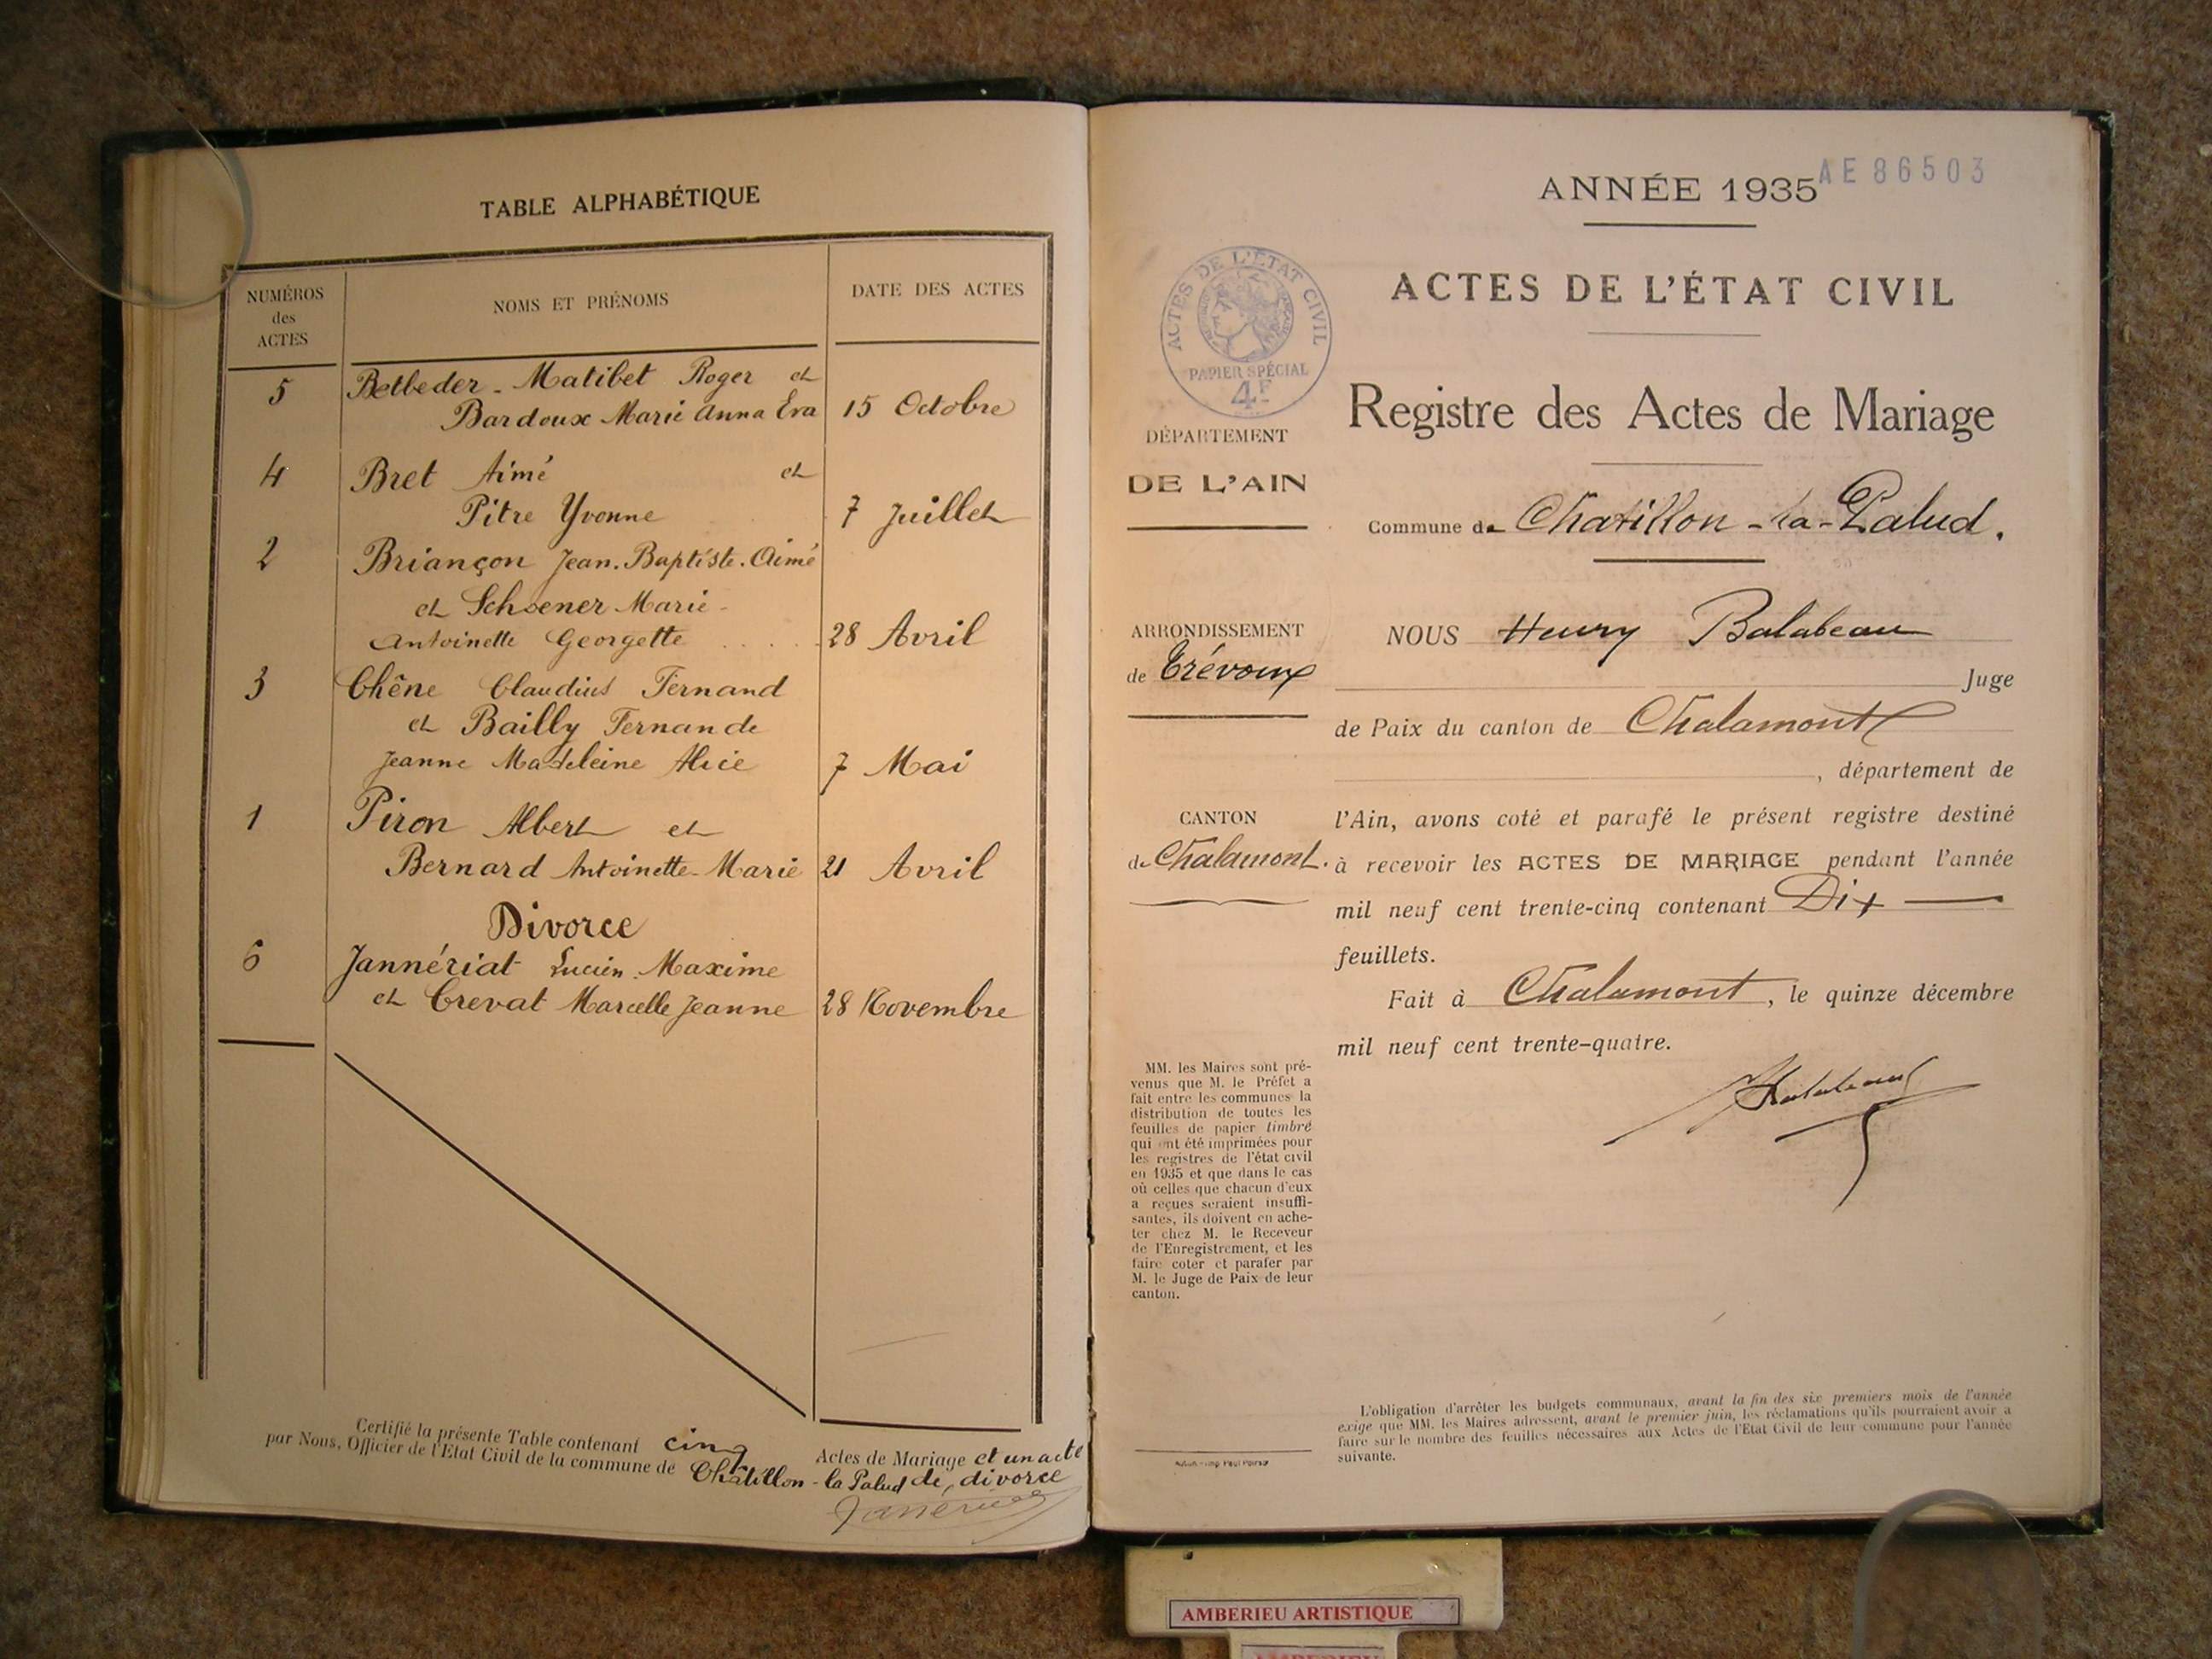 TABLE ALPHABÉTIQUE
NUMÉROS
des
ACTES
NOMS ET PRÉNOMS
DATE DES ACTES
5 Betbeder - Matibet Roger et
Bardoux Marie Anna Eva 15 Octobre
4 Bret Aimé et
Pitre Yvonne 7 Juillet
2 Briançon Jean-Baptiste-Aimé
et Schoener Marie-
Antoinette Georgette 28 Avril
3 Chêne Claudius Fernand
et Bailly Fernande
Jeanne Madeleine Alice 7 Mai
1 Piron Albert et
Bernard Antoinette-Marie 21 Avril
Divorce
6 Jannériat Lucien-Maxime
et Crevat Marcelle Jeanne 28 Novembre
Certifié la présente Table contenant cinq Actes de Mariage et un acte
par Nous, Officier de l'Etat Civil de la commune de Châtillon-la Palud de divorce
ANNÉE 1935
AE 86503
ACTES DE L'ÉTAT CIVIL
PAPIER SPÉCIAL
4F
ACTES DE L'ÉTAT CIVIL
Registre des Actes de Mariage
DÉPARTEMENT
DE L'AIN
Commune de Chatillon-la-Palud.
ARRONDISSEMENT
de Trévoux
NOUS Henry Balabeau
Juge
de Paix du canton de Chalamont
, département de
CANTON
de Chalamont.
l'Ain, avons coté et parafé le présent registre destiné
à recevoir les ACTES DE MARIAGE pendant l'année
mil neuf cent trente-cinq contenant Dix
feuillets.
Fait à Chalamont, le quinze décembre
mil neuf cent trente-quatre.
MM. les Maires sont pré-
venus que M. le Préfet a
fait entre les communes la
distribution de toutes les
feuilles de papier timbré
qui ont été imprimées pour
les registres de l'état civil
en 1935 et que dans le cas
où celles que chacun d'eux
a reçues seraient insuffi-
santes, ils doivent en ache-
ter chez M. le Receveur
de l'Enregistrement, et les
faire coter et parafer par
M. le Juge de Paix de leur
canton.
L'obligation d'arrêter les budgets communaux, avant la fin des six premiers mois de l'année
exige que MM. les Maires adressent, avant le premier juin, les réclamations qu'ils pourraient avoir a
faire sur le nombre des feuilles nécessaires aux Actes de l'Etat Civil de leur commune pour l'année
suivante.
AMBERIEU ARTISTIQUE
AMBERIEU